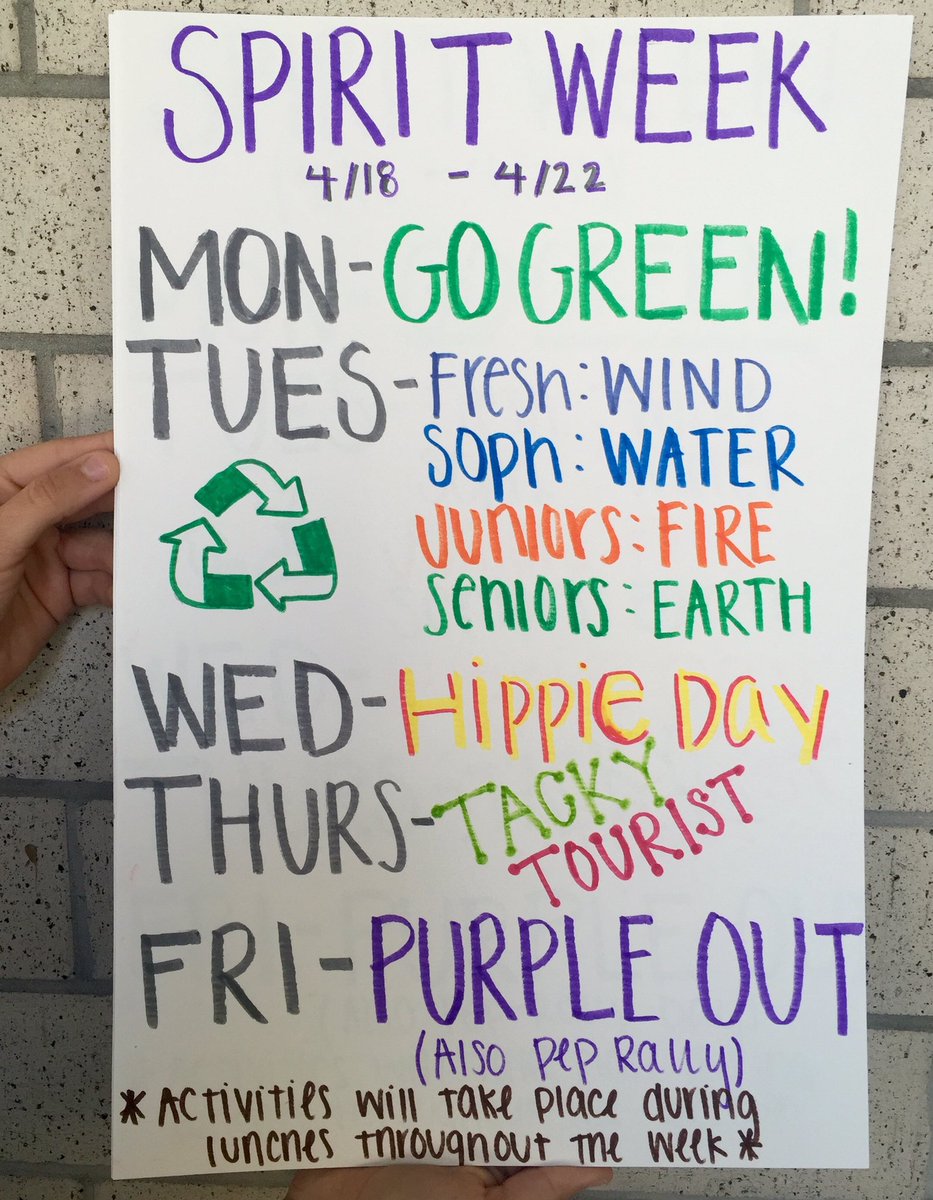 SPIRIT WEEK
4/18 - 4/22
MON-GO GREEN!
TUES-Fresh: WIND
Soph: WATER
Juniors: FIRE
Seniors: EARTH
WED-Hippie Day
THURS-TACKY
TOURIST
FRI-PURPLE OUT
(Also pep Rally)
*Activities will take place during
lunches throughout the week*